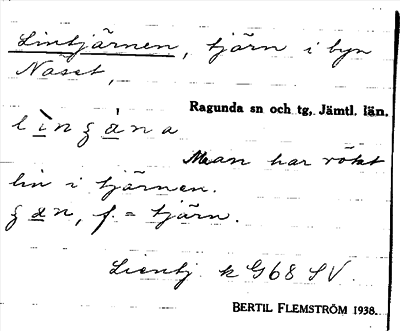 Lintjärnen, tjärn i byn
Näset,
Ragunda sn och tg, Jämtl. län.
Man har rötat
lin i tjärnen.
f. = tjärn.
Lientj k G68 SV.
BERTIL FLEMSTRÖM 1938.